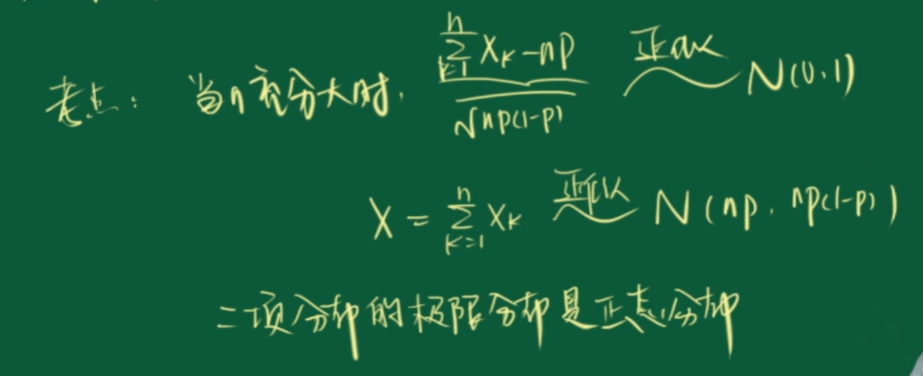 考点: 当n充分大时, (∑_{k=1}^{n} X_k - np) / √(np(1-p)) 近似~ N(0,1)
X = ∑_{k=1}^{n} X_k 近似~ N(np, np(1-p))
二项分布的极限分布是正态分布